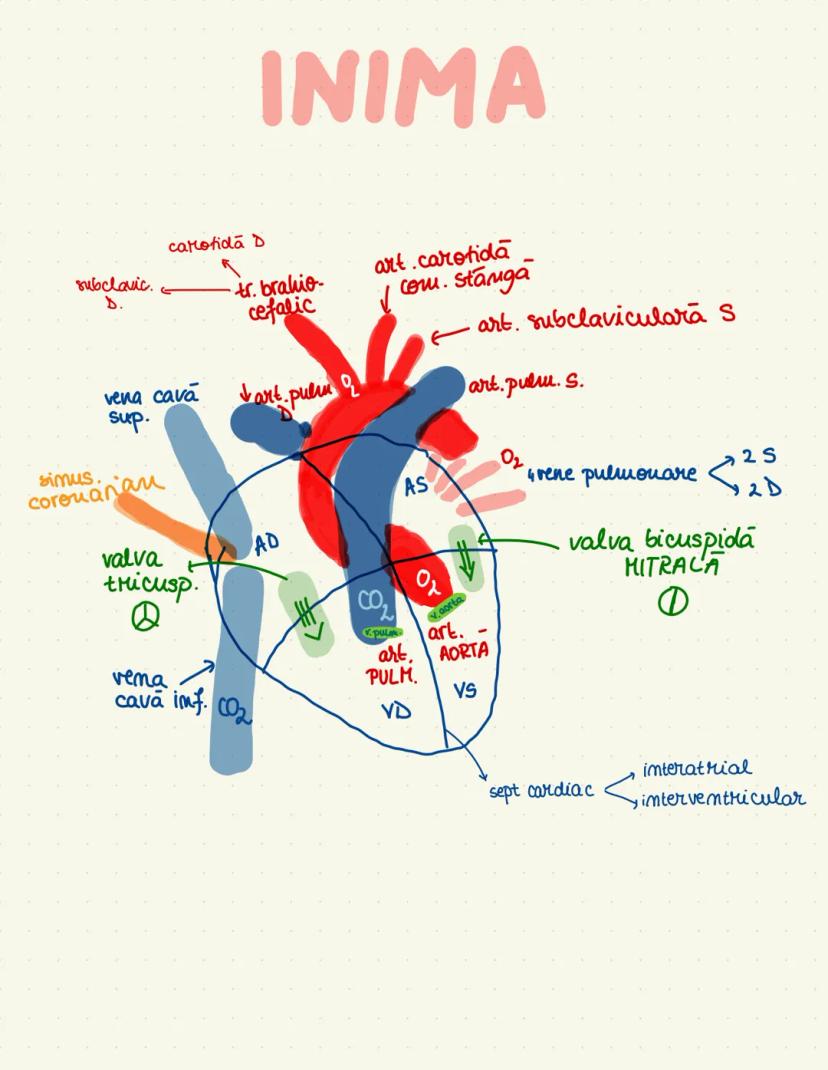 INIMA
carotidă D
subclavic.
D.
tr. brahio-
cefalic
art. carotidă
com. stângă
art. subclaviculară S
vena cavă
sup.
art. pulm
D
O2
art. pulm. S.
sinus.
coronarian
AS
O2
4 vene pulmonare
2 S
2 D
AD
valva
tricusp.
valva bicuspidă
MITRALĂ
CO2
O2
v. pulm.
v. aorta
art.
PULM.
art.
AORTA
vena
cavă inf.
CO2
VD
VS
sept cardiac
interatrial
interventricular